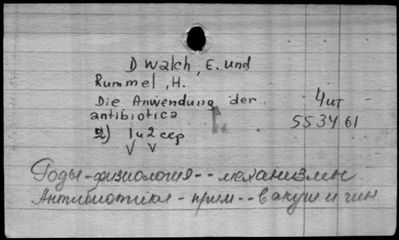 D Walch, E. und
Rummel, H.
Die Anwendung der
antibiotica
4 шт
553461
2) 1 и 2 сер
V V
Роды - физиология - - механизмы.
Антибиотики - прим - - в акуш и гин